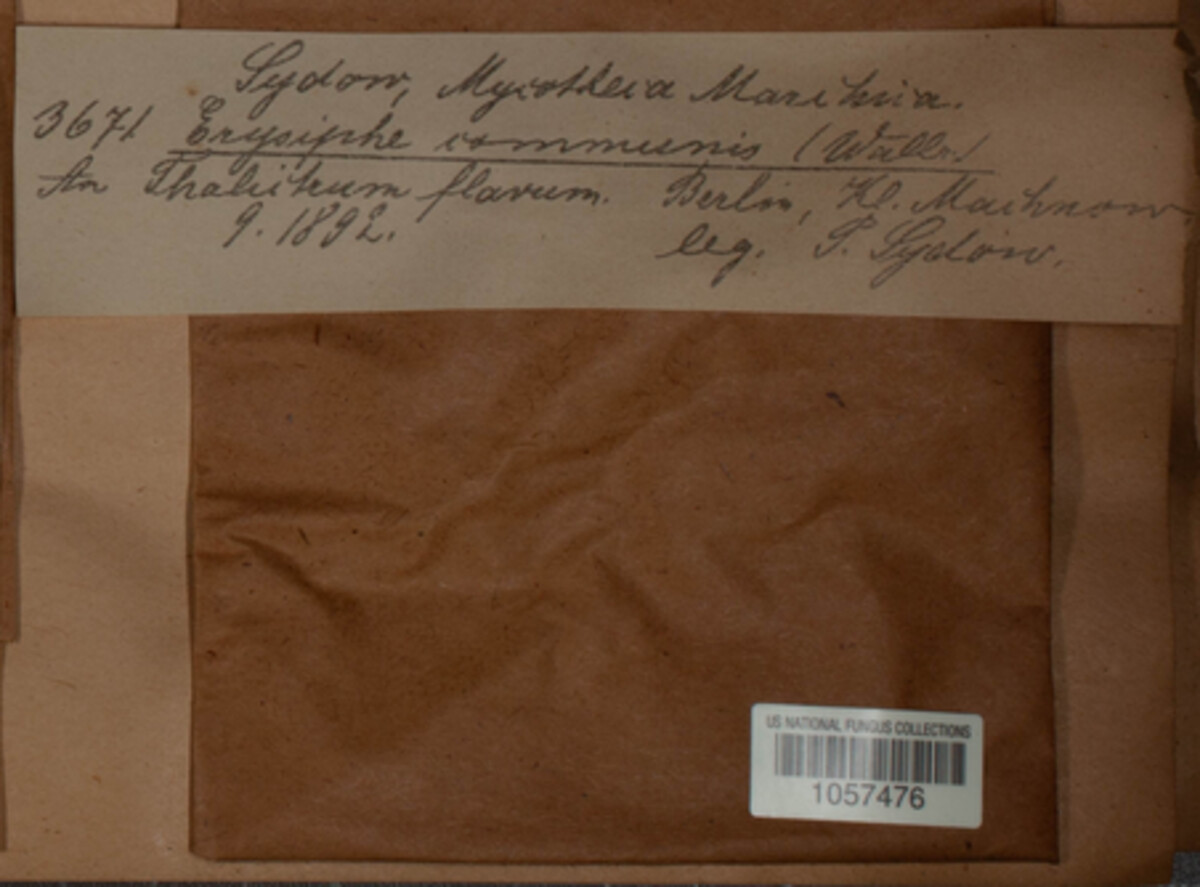 Sydow, Mycotheca Marchica.
3671 Erysiphe communis (Wallr.)
An Thalictrum flavum. Berlin, Kl. Machnow,
9. 1892. leg. P. Sydow.
US NATIONAL FUNGUS COLLECTIONS
1057476